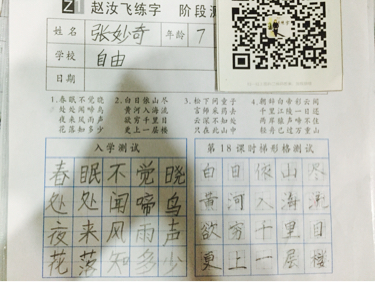 Z1 赵汝飞练字 阶段测
姓名 张妙奇 年龄 7
学校 自由
日期
1.春眠不觉晓 2.白日依山尽 3.松下问童子 4.朝辞白帝彩云间
处处闻啼鸟 黄河入海流 言师采药去 千里江陵一日还
夜来风雨声 欲穷千里目 只在此山中 两岸猿声啼不住
花落知多少 更上一层楼 云深不知处 轻舟已过万重山
入学测试 第18课时梯形格测试
春眠不觉晓 白日依山尽
处处闻啼鸟 黄河入海流
夜来风雨声 欲穷千里目
花落知多少 更上一层楼